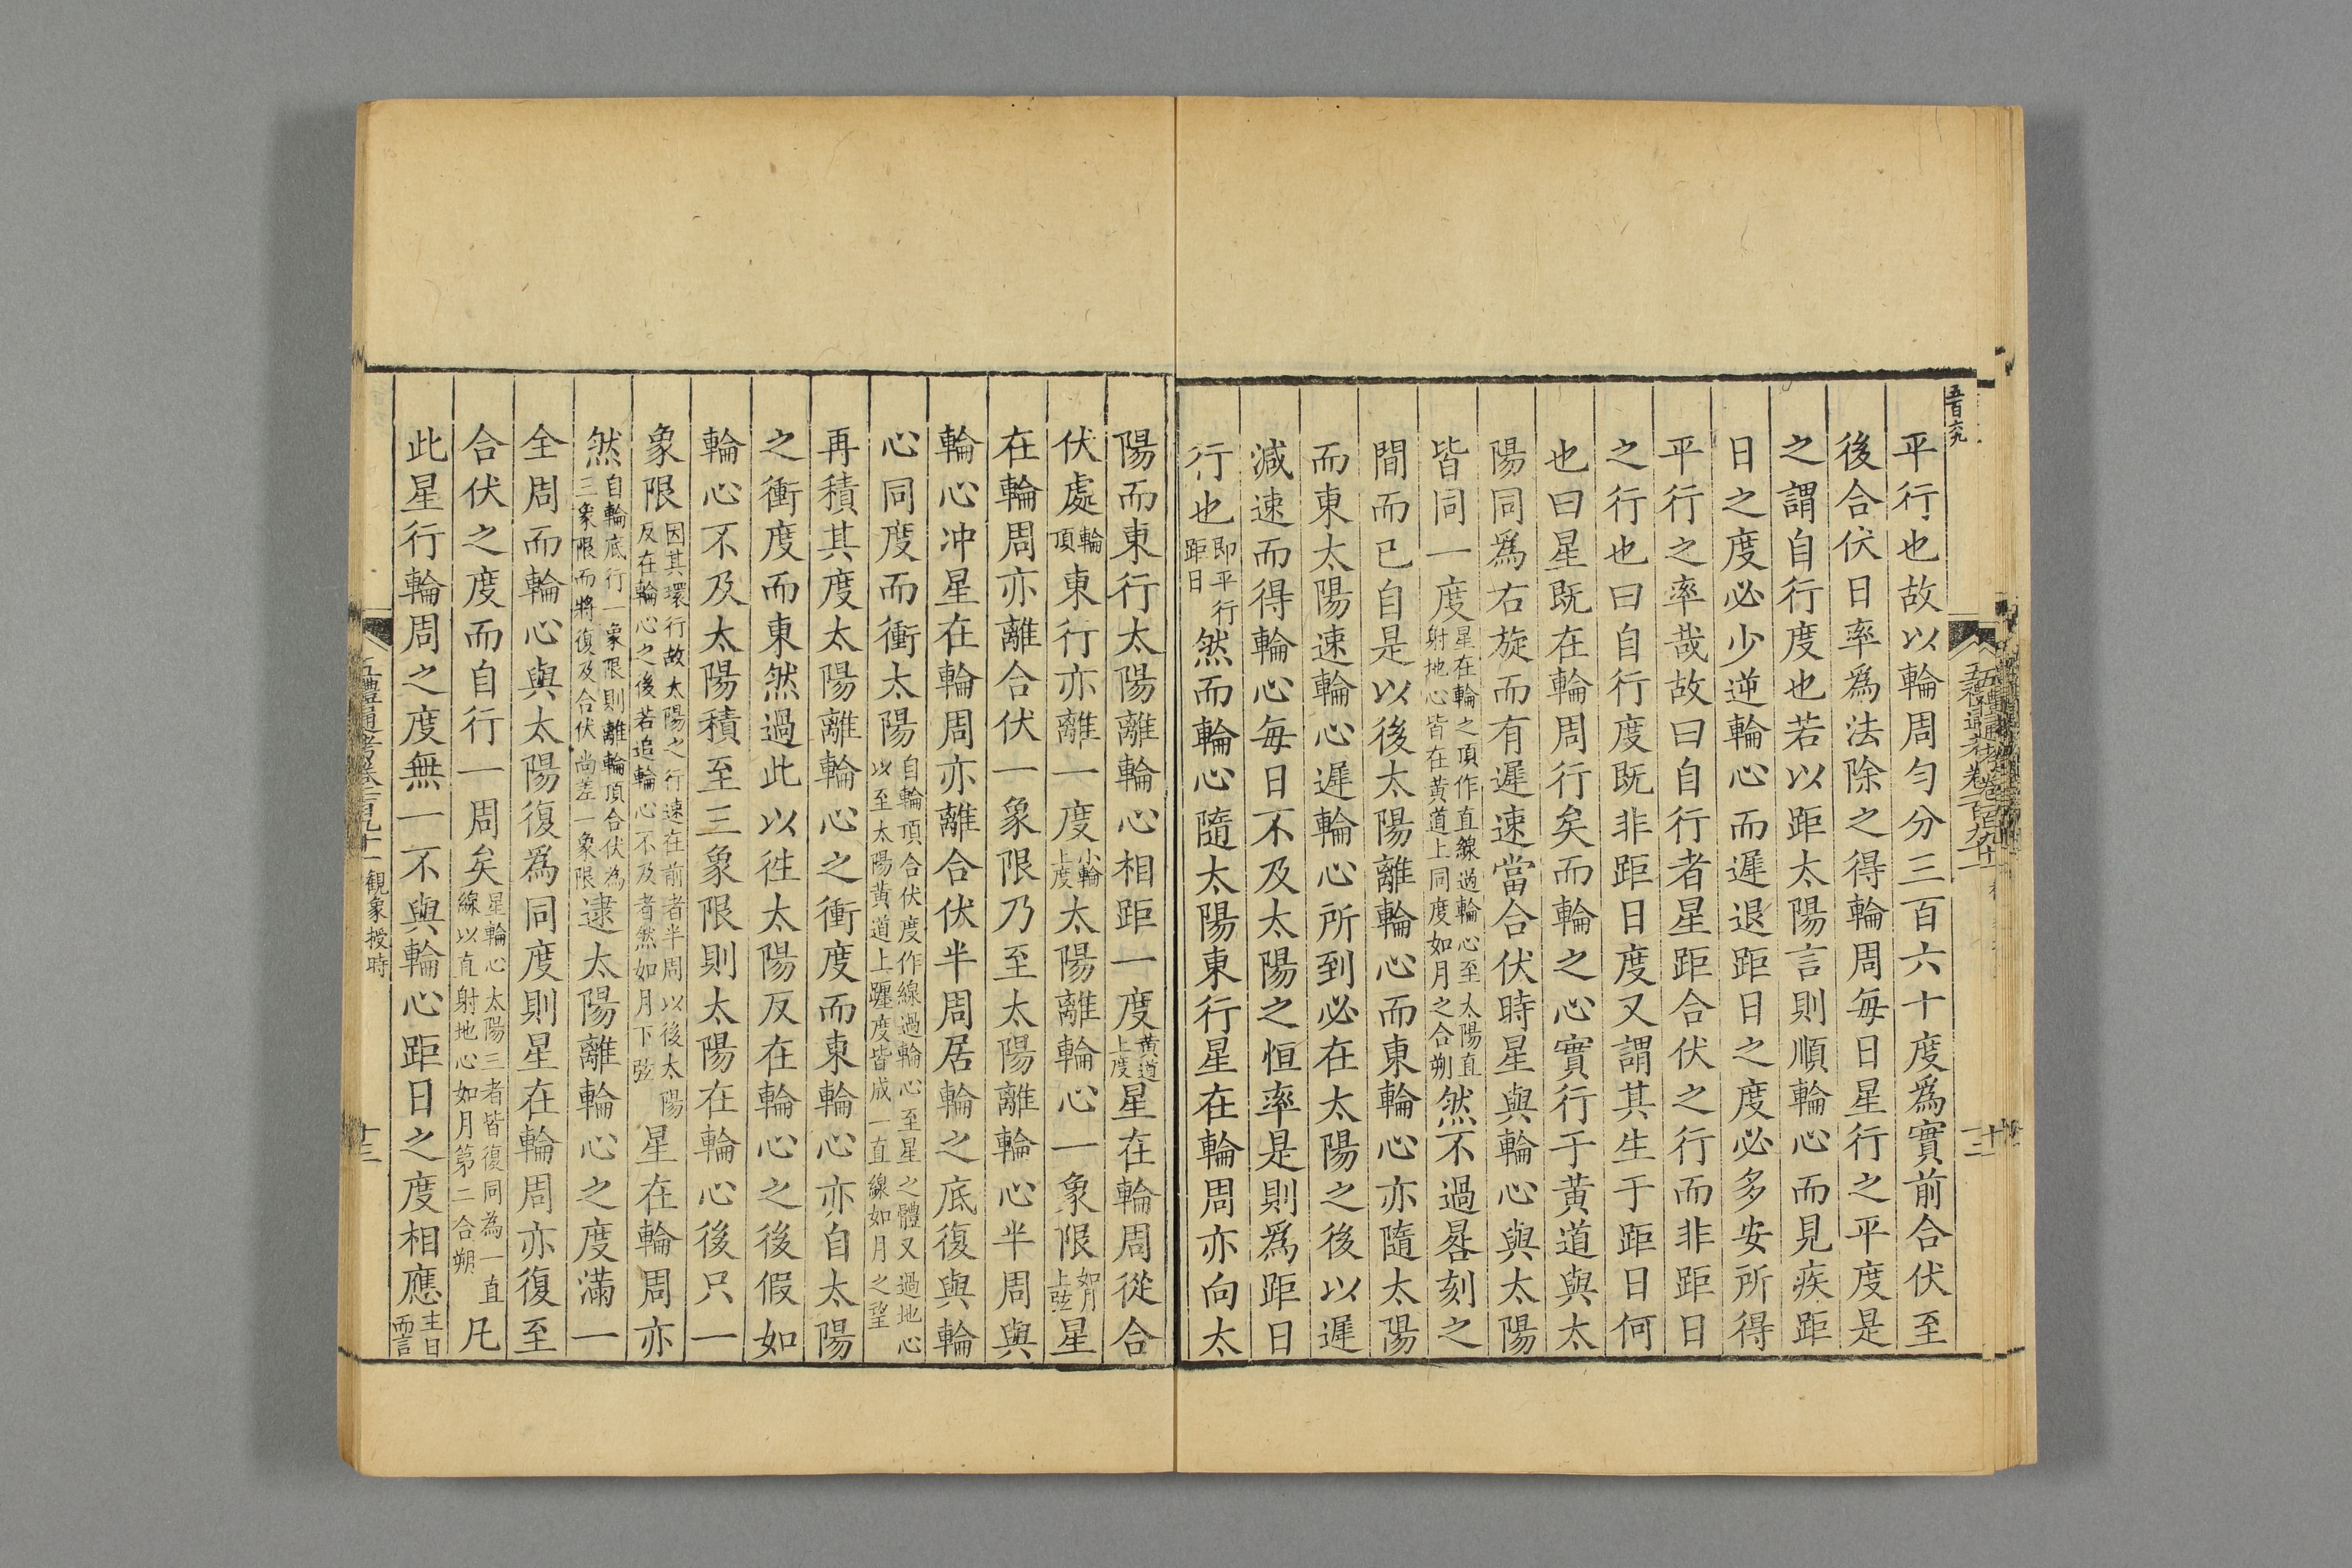 五百六九
平行也故以輪周勻分三百六十度爲實前合伏至
後合伏日率爲法除之得輪周每日星行之平度是
之謂自行度也若以距太陽言則順輪心而見疾距
日之度必少逆輪心而遲退距日之度必多安所得
平行之率哉故曰自行者星距合伏之行而非距日
之行也曰自行度既非距日度又謂其生于距日何
也曰星既在輪周行矣而輪之心實行于黃道與太
陽同爲右旋而有遲速當合伏時星與輪心與太陽
皆同一度星在輪之頂作直線過輪心至太陽直射地心皆在黃道上同度如月之合朔然不過晷刻之
間而已自是以後太陽離輪心而東輪心亦隨太陽
而東太陽速輪心遲輪心所到必在太陽之後以遲
減速而得輪心每日不及太陽之恒率是則爲距日
行也即平行距日然而輪心隨太陽東行星在輪周亦向太
陽而東行太陽離輪心相距一度黃道上度星在輪周從合
伏處輪頂東行亦離一度小輪上度太陽離輪心一象限如月上弦星
在輪周亦離合伏一象限乃至太陽離輪心半周與
輪心冲星在輪周亦離合伏半周居輪之底復與輪
心同度而衝太陽自輪頂合伏度作線過輪心至星之體又過地心以至太陽黃道上躔度皆成一直線如月之望
再積其度太陽離輪心之衝度而東輪心亦自太陽
之衝度而東然過此以徃太陽反在輪心之後假如
輪心不及太陽積至三象限則太陽在輪心後只一
象限因其環行故太陽之行速在前者半周以後太陽反在輪心之後若追輪心不及者然如月下弦星在輪周亦
然自輪底行一象限則離輪頂合伏為三象限而將復及合伏尚差一象限逮太陽離輪心之度滿一
全周而輪心與太陽復爲同度則星在輪周亦復至
合伏之度而自行一周矣星輪心太陽三者皆復同為一直線以直射地心如月第二合朔凡
此星行輪周之度無一不與輪心距日之度相應主日而言
五禮通考卷一百九十一觀象授時
十三